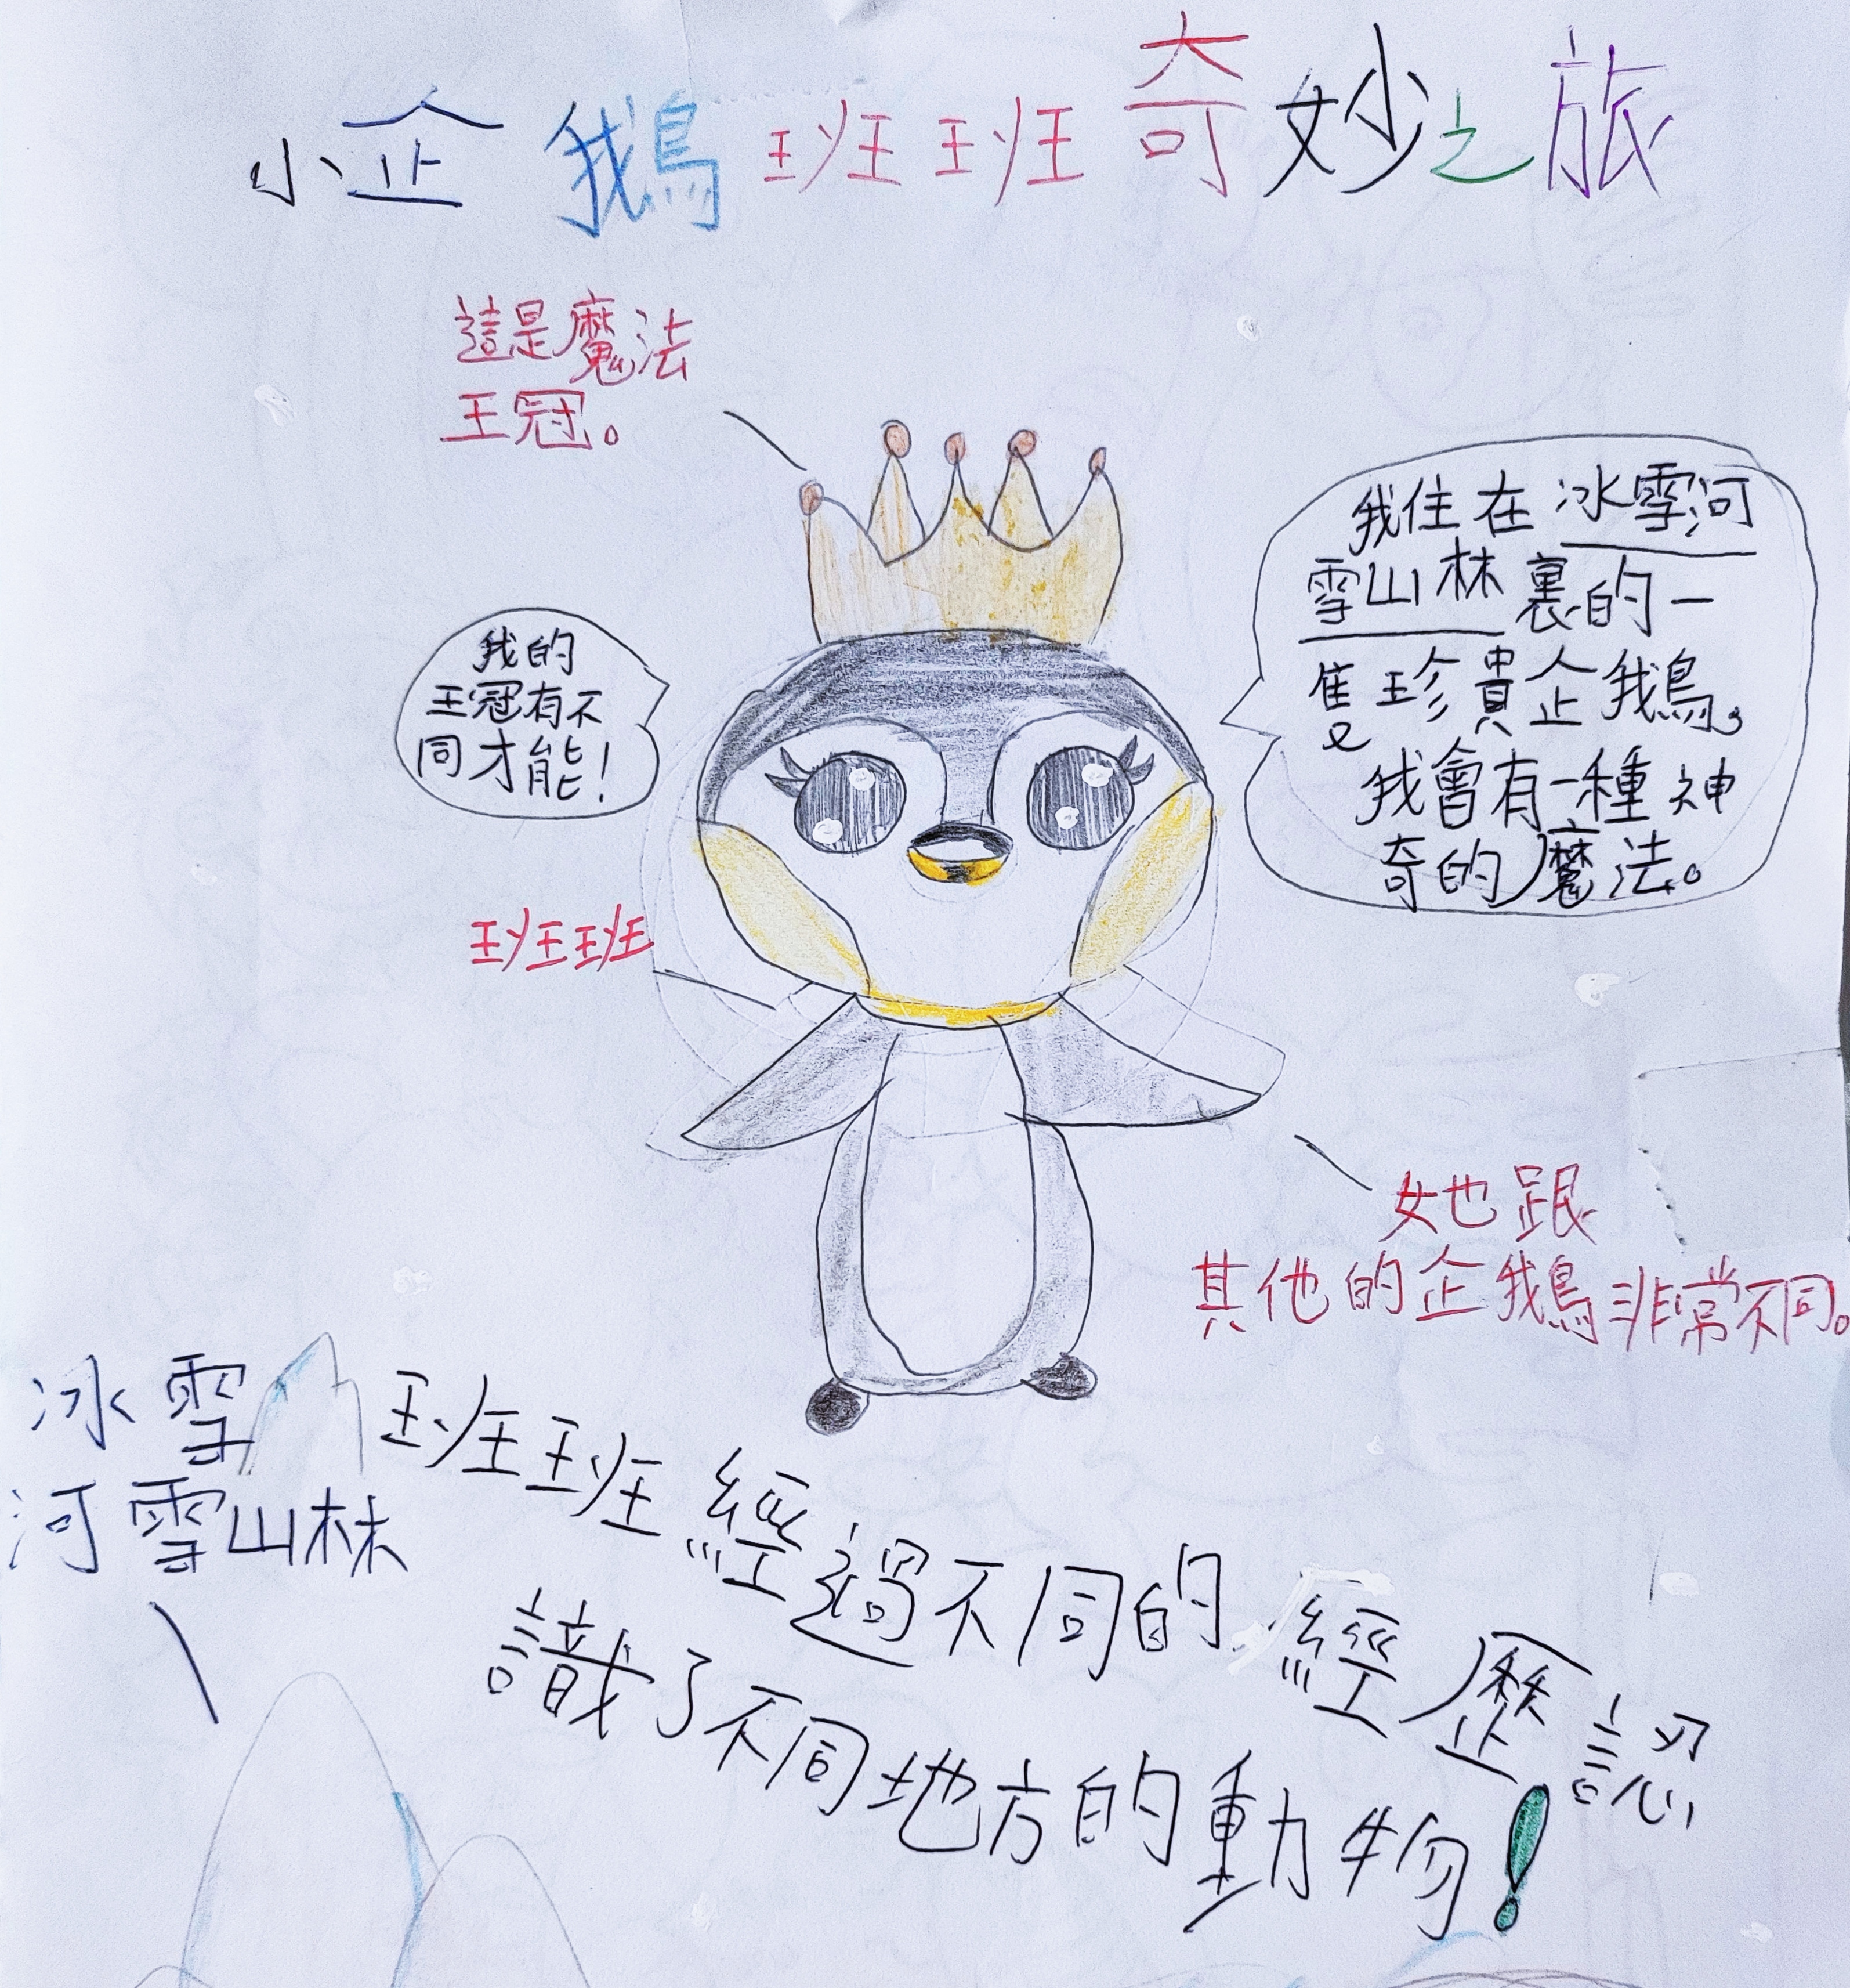 小企鵝班班奇妙之旅
這是魔法
王冠。
我的
王冠有不
同才能！
我住在冰雪河
雪山林裏的一
隻珍貴企鵝。
我會有一種神
奇的魔法。
班班
她跟
其他的企鵝非常不同。
冰雪
河雪山林
班班經過不同的經歷認
識了不同地方的動物！